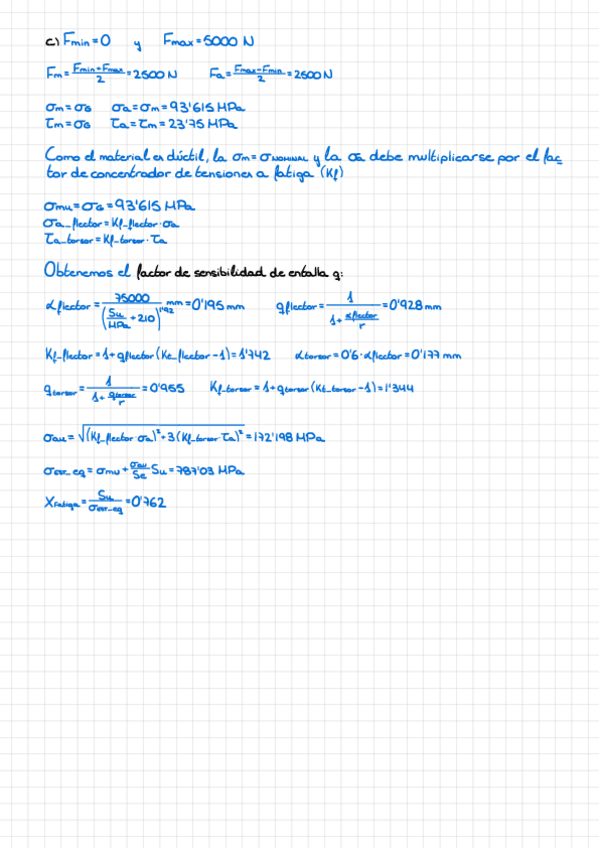 c) Fmin=0 y Fmax=5000 N
Fm=(Fmin+Fmax)/2=2500 N Fa=(Fmax-Fmin)/2=2500 N
σm=σG σa=σm=93'615 MPa
τm=σG τa=τm=23'75 MPa
Como el material es dúctil, la σm=σNOMINAL y la σa debe multiplicarse por el fac_
tor de concentrador de tensiones a fatiga (Kf)
σmu=σG=93'615 MPa
σa_flector=Kf_flector·σa
τa_torsor=Kf_torsor·τa
Obtenemos el factor de sensibilidad de entalla q:
αflector=75000/(Su/MPa+210)^1'92 mm=0'195 mm qflector=1/(1+αflector/r)=0'928 mm
Kf_flector=1+qflector(Kt_flector-1)=1'742 αtorsor=0'6·αflector=0'177 mm
qtorsor=1/(1+qtorsor/r)=0'955 Kf_torsor=1+qtorsor(Kt_torsor-1)=1'344
σau=√((Kf_flector·σa)²+3(Kf_torsor·τa)²)=172'198 MPa
σest_eq=σmu+(σau/Se)Su=787'03 MPa
Xfatiga=Su/σest_eq=0'762